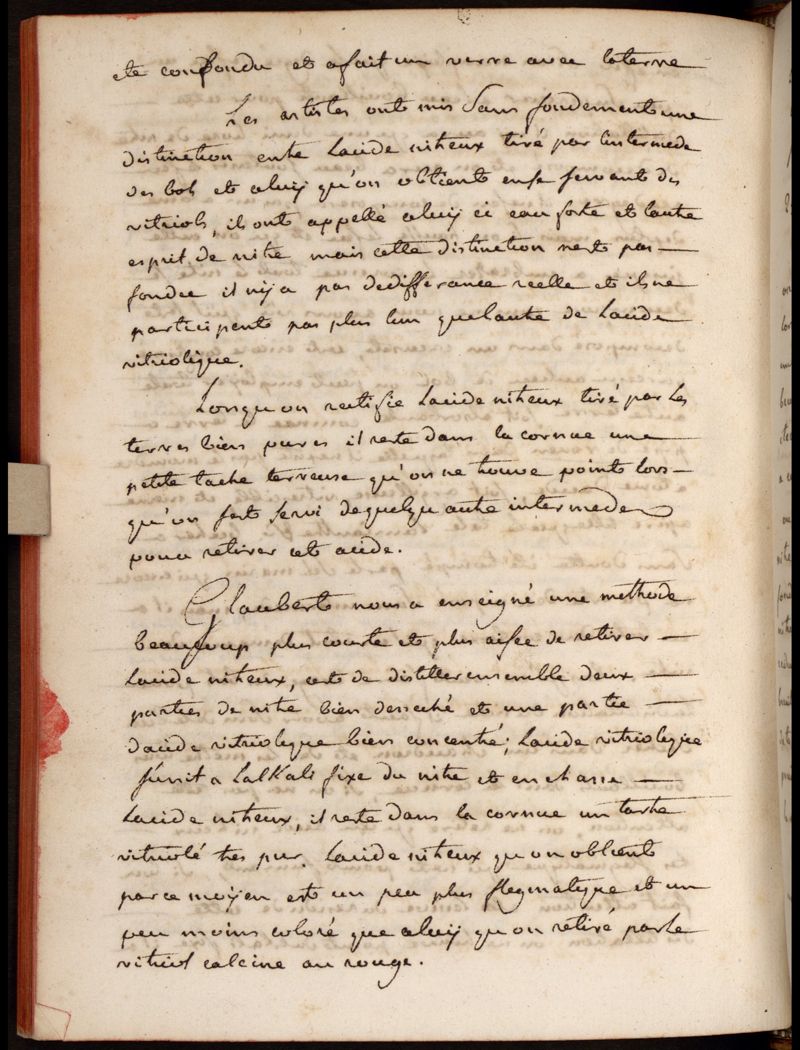 ete confondu et a fait un verre avec laterre
Les artistes ont mis Sans fondement une
distinction entre Lacide nitreux tiré par lintermede
des bols et celuy qu'on obtient en se servant des
vitriols, ils ont appellé celuy ci eau forte et lautre
esprit de nitre mais cette distinction nest pas
fondée il ny a pas de differance reelle et ils ne
participent pas plus lun que lautre de Lacide
vitriolique.
Lorsqu on rectifie Lacide nitreux tiré par les
terres bien pures il reste dans la cornue une
petite tache terreuse qu'on ne trouve point lors
qu'on sest servi de quelqu autre intermede
pour retirer cet acide.
Glaubert nous a enseigné une methode
beaucoup plus courte et plus aisée de retirer
Lacide nitreux, cest de distiller ensemble deux
parties de nitre bien desseché et une partie
dacide vitriolique bien concentré; Lacide vitriolique
sunit a Lalkali fixe du nitre et en chasse
Lacide nitreux, il reste dans la cornue un tartre
vitriolé tres pur. Lacide nitreux qu on obtient
par ce moyen est un peu plus flegmatique et un
peu moins coloré que celuy qu on retire par le
vitriol calciné au rouge.